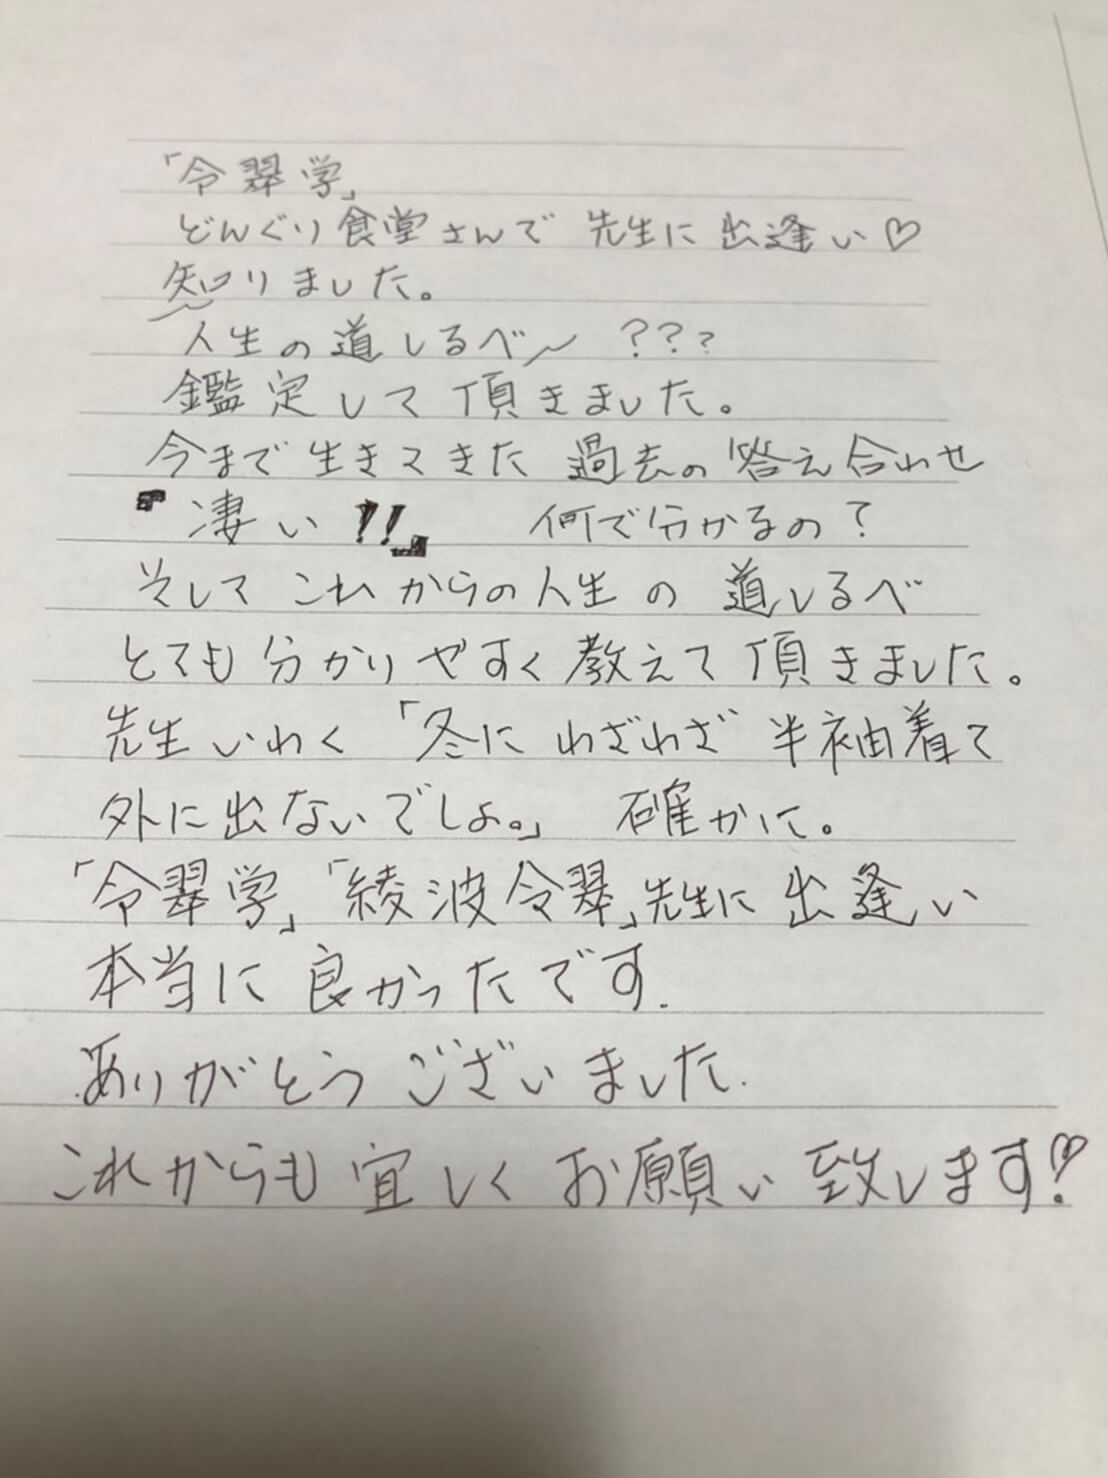 「令翠学」
どんぐり食堂さんで 先生に出逢い♡
知りました。
〜人生の道しるべ〜 ???
鑑定して頂きました。
今まで生きてきた 過去の答え合わせ
『凄い!!』 何で分かるの?
そして これからの人生の 道しるべ
とても分かりやすく教えて頂きました。
先生いわく「冬に わざわざ 半袖着て
外に出ないでしょ。」 確かに。
「令翠学」「綾波令翠」先生に 出逢い
本当に良かったです.
ありがとうございました.
これからも宜しくお願い致します!♡